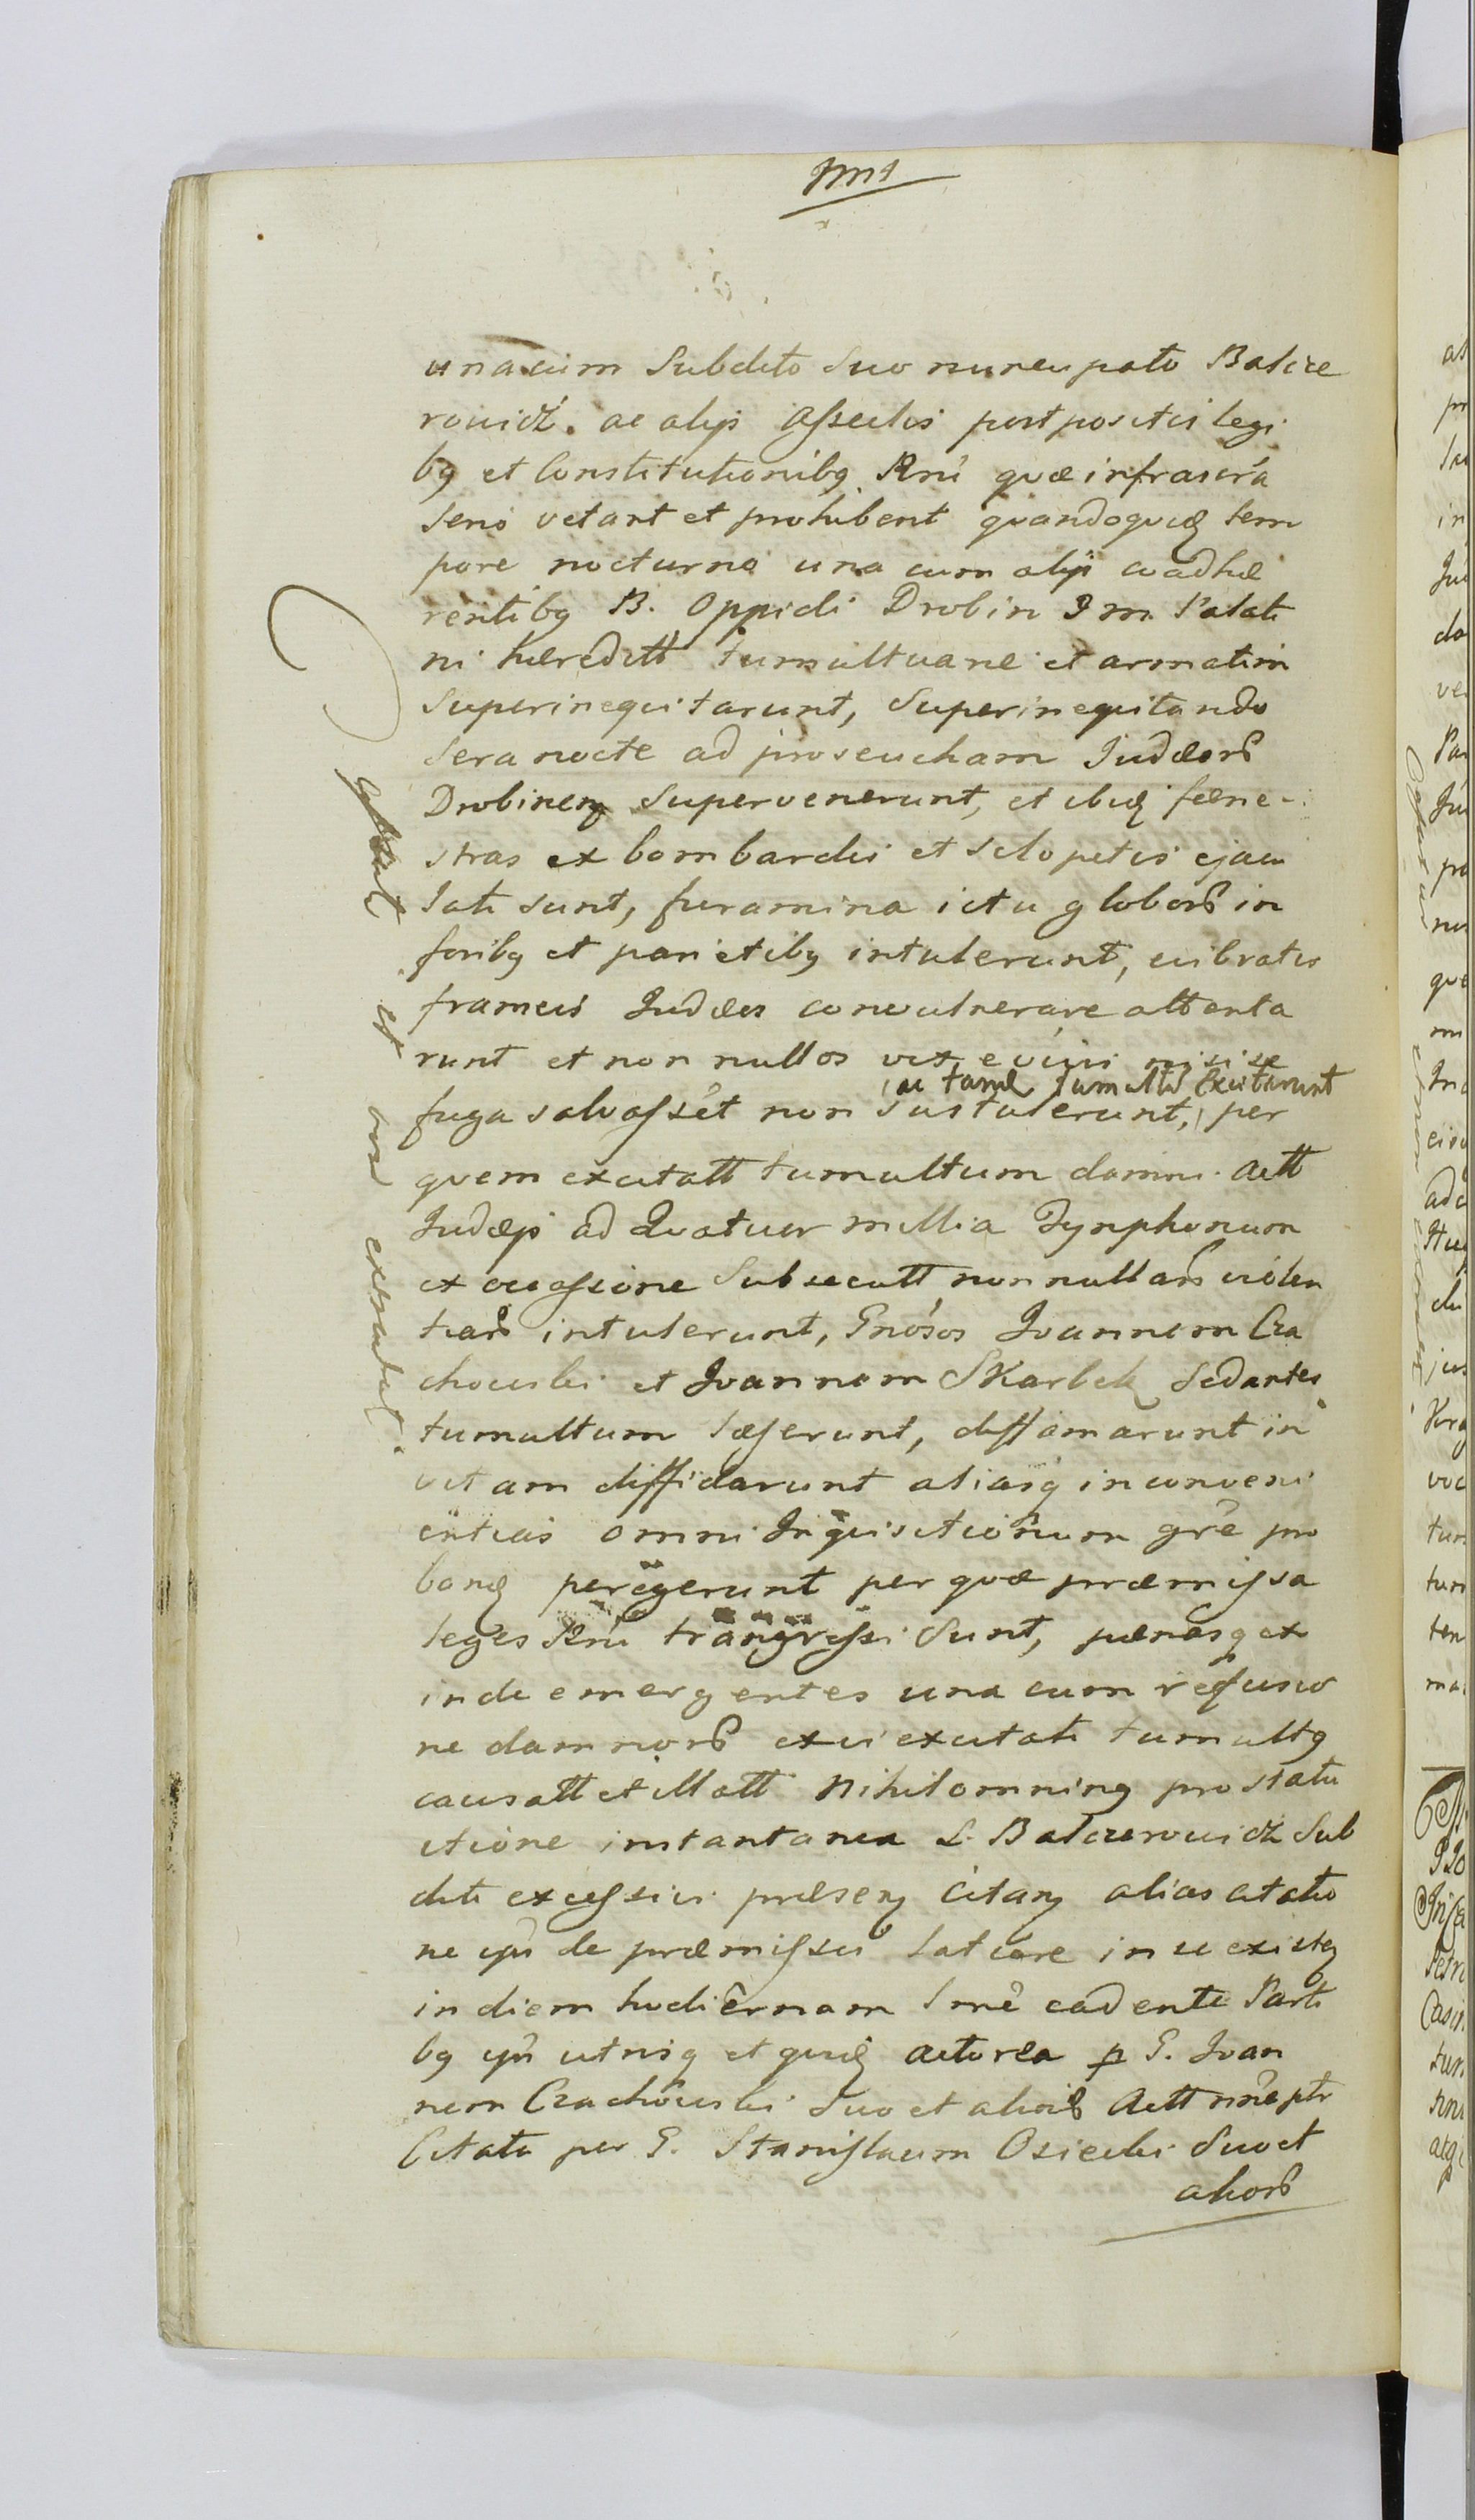 unacum Subdito Suo nuncupato Balcze
rowicz. ac alijs asseclis postpositis legi
bq et Constitutionibq Rnũ quæ infrascra
serio vetant et prohibent quandoquidẽ tem
pore nocturno una cum alijs coadhæ
rentibq B. Oppidi Drobin I m. Palati
ni hæreditt tumultuane et armatim
Superinequitarunt, Superinequitando
sera nocte ad proseucham Judæorũ
Drobinen Supervenerunt, et ibiq fæne-
stras ex bombardis et sclopetis ejacu
lati sunt, furamina ictu globorũ in
foribq et parietibq intulerunt, vibratis
frameis Judæos convulnerare attenta
runt et non nullos vita e vivis nisi se
ac tamẽ tumultũ Excitarunt
fuga salvassẽt non sustulerunt, per
quem excitatt tumultum damni Actt
Judæis ad Quatuor millia Tynphonum
ex occasione Subsecutt, non nullasq violen
tias intulerunt, Gnosos Joannem Cza
chowski et Joannem Skarbek Sedantes
tumultum læserunt, diffamarunt in
vitam diffidarunt aliasq inconveni
entias omni Inquisitionum gre pro
band peregerunt per quæ præmissa
leges Rnũ trangressi Sunt, pænasq ex
inde emergentes una cum refusio
ne damnorũ ex vi excitati tumultq
causatt et illatt Nihilominq pro statu
itione instantanea L. Balczerowicz Sub
diti excessivi præsen Citan alias citatio
ne ipũ de præmissis latiore in se existen
in diem hodiernam lme cadente Parti
bq ipũ utrisq et quid actorea p G. Joan
nem Czachowski Suo et aliorũ Actt nne ptr
Citata per G. Stanislaum Osiecki Suo et
aliorũ
et
exmatut